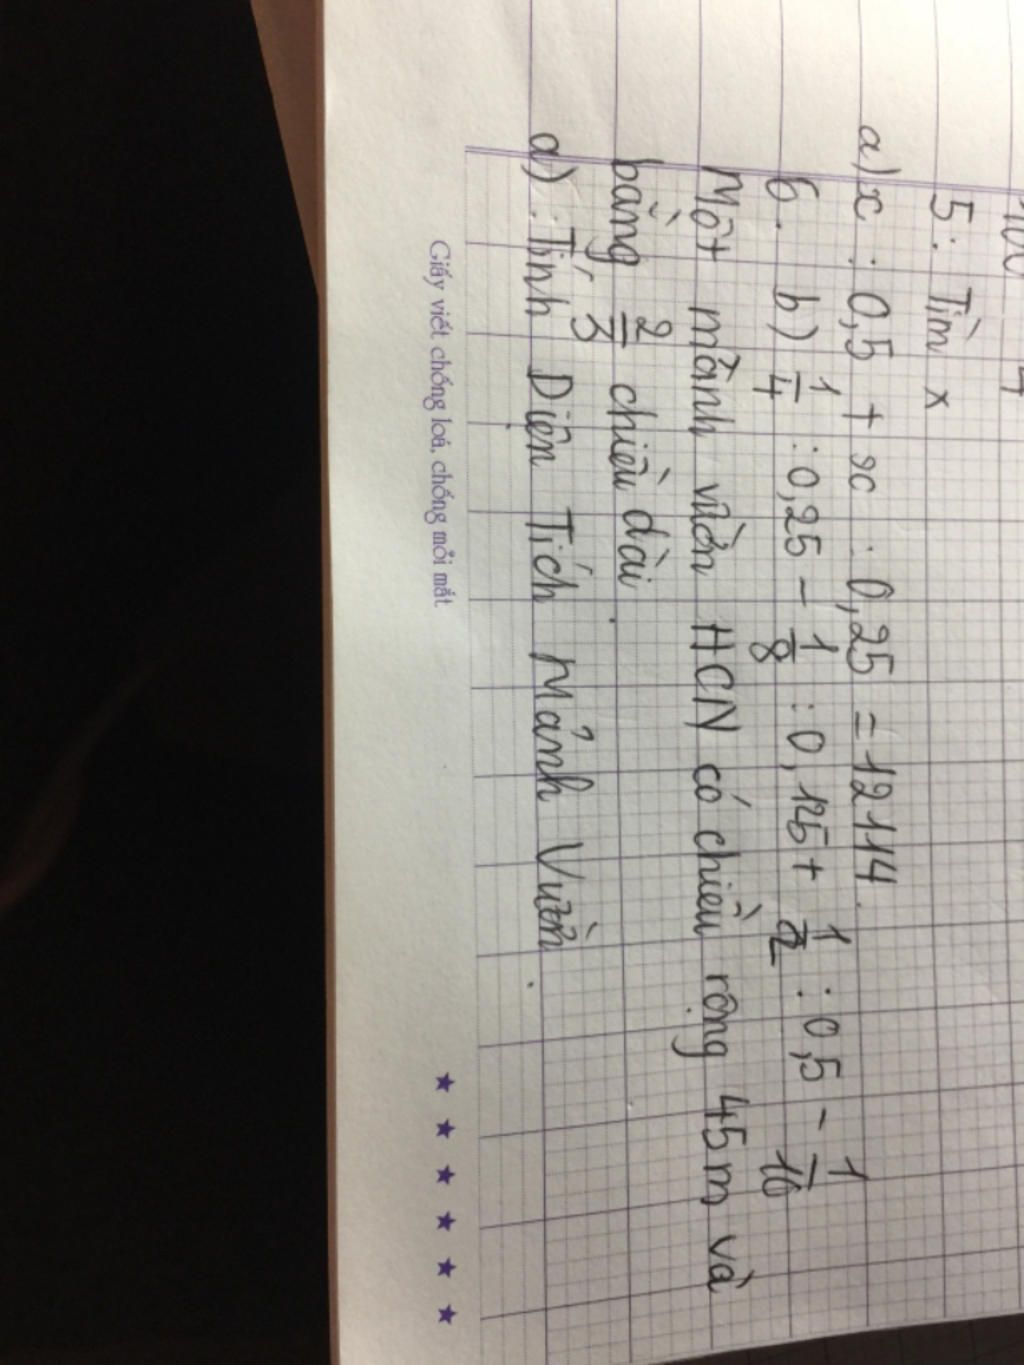 100
4
5: Tìm x
a) x : 0,5 + x : 0,25 = 12114.
6. b) 1/4 : 0,25 - 1/8 : 0,125 + 1/2 : 0,5 - 1/10
Một mảnh vườn HCN có chiều rộng 45m và
bằng 2/3 chiều dài
a) Tính Diện Tích Mảnh Vườn.
Giấy viết chống loá, chống mỏi mắt